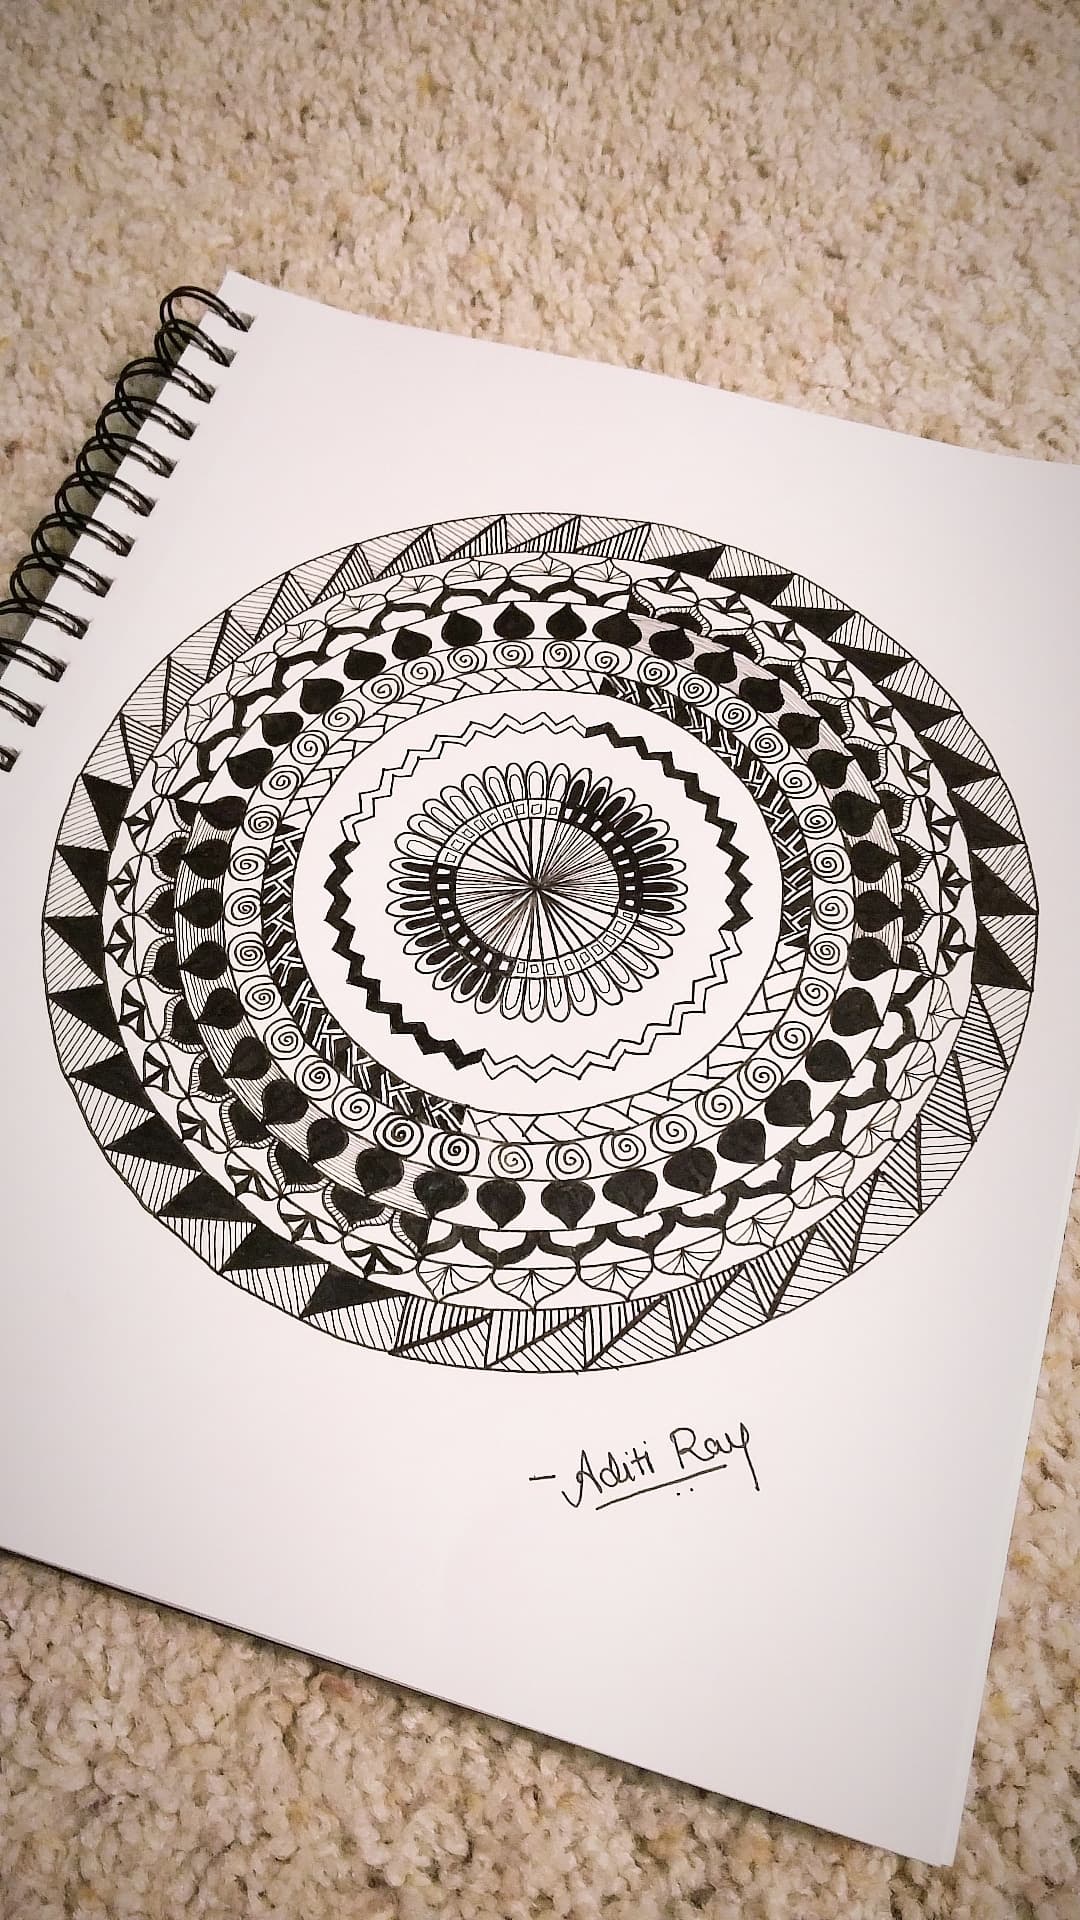 - Aditi Ray